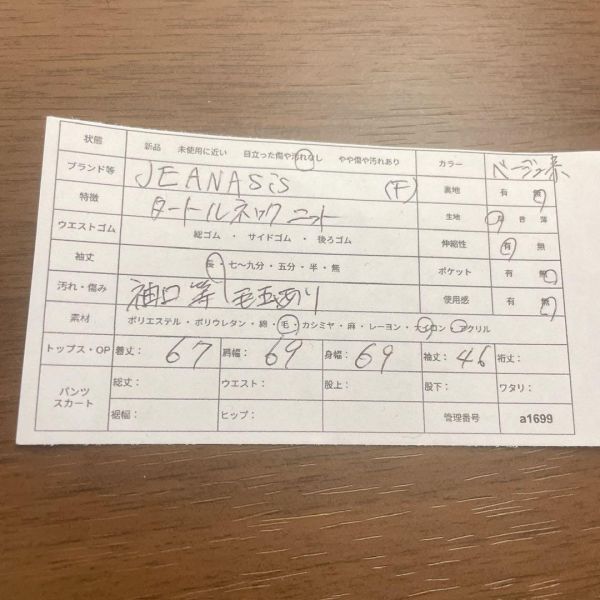 状態 新品 未使用に近い 目立った傷や汚れなし やや傷や汚れあり カラー ベージュ系
ブランド等 JEANASiS (F) 裏地 有 無
特徴 タートルネックニット 生地 普 薄
ウエストゴム 総ゴム ・ サイドゴム ・ 後ろゴム 伸縮性 有 無
袖丈 長・七〜九分・五分・半・無 ポケット 有 無
汚れ・傷み 袖口等 毛玉あり 使用感 有 無
素材 ポリエステル・ポリウレタン・綿・毛・カシミヤ・麻・レーヨン・ナイロン・アクリル
トップス・OP 着丈: 67 肩幅: 69 身幅: 69 袖丈: 46 裄丈:
パンツ スカート 総丈: ウエスト: 股上: 股下: ワタリ:
裾幅: ヒップ: 管理番号 a1699